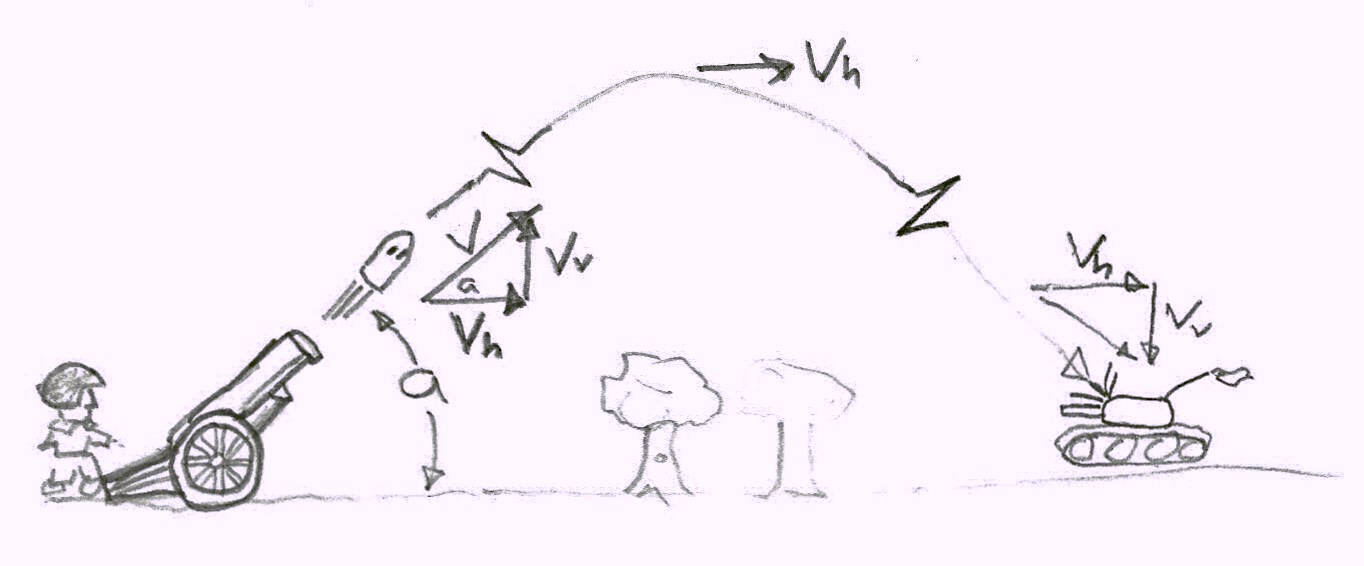 Vh
V
Vv
a
Vh
a
Vh
Vv